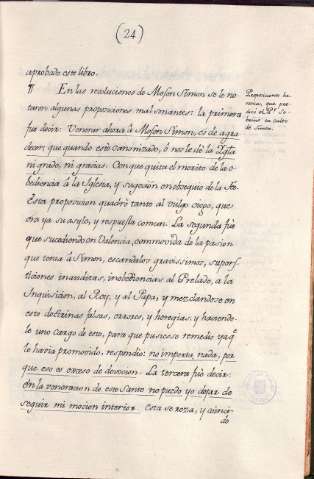 (24)
aprobado este libro.
¶ En las revoluciones de Mosen Simon se le no
taron algunas proposiciones mal sonantes: la primera
fue decir: Venerar ahora à Mosen Simon, es de agra
decer; que quando esté canonizado, ò nos lo dé la Iglª
ni grado, ni gracias. Con que quita el merito de la o
bediencia à la Iglesia, y sugecion en obsequio de la Fe.
Esta proposicion quadrò tanto al vulgo ciego, que
era ya su asylo, y respuesta comun. La segunda fuè
que sucediendo en Valencia, commovida de la pasion
que tenia à Simon, escandalos gravissimos, supers
ticiones inauditas, inobediencias al Prelado, a la
Inquisicion, al Rey, y al Papa, y mezclandose en
esto doctrinas falsas, errores, y heregias, y haciendo
le uno cargo de esto, para que pusiesse remedio ya qᵉ
lo havia promovido, respondiò: no importa nada, por
que eso es exceso de devocion. La tercera fuè decir:
en la veneracion de este Santo no puedo yo dejar de
seguir mi mocion interior. Esta se roza, y coinci
de
Proposiciones he
que pre
dicò el Pᵉ So
en culto
de Simon.